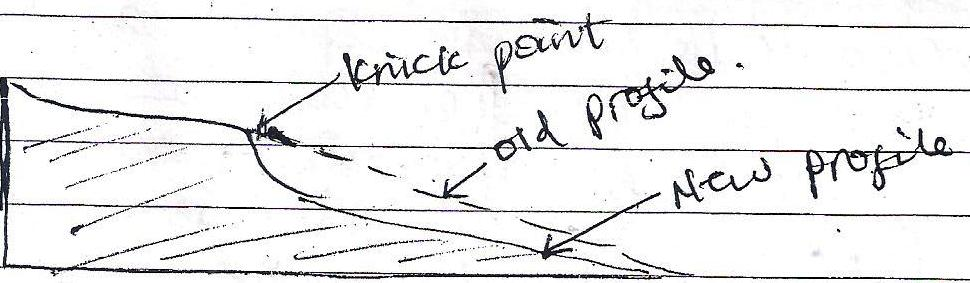 knick point
old profile.
New profile